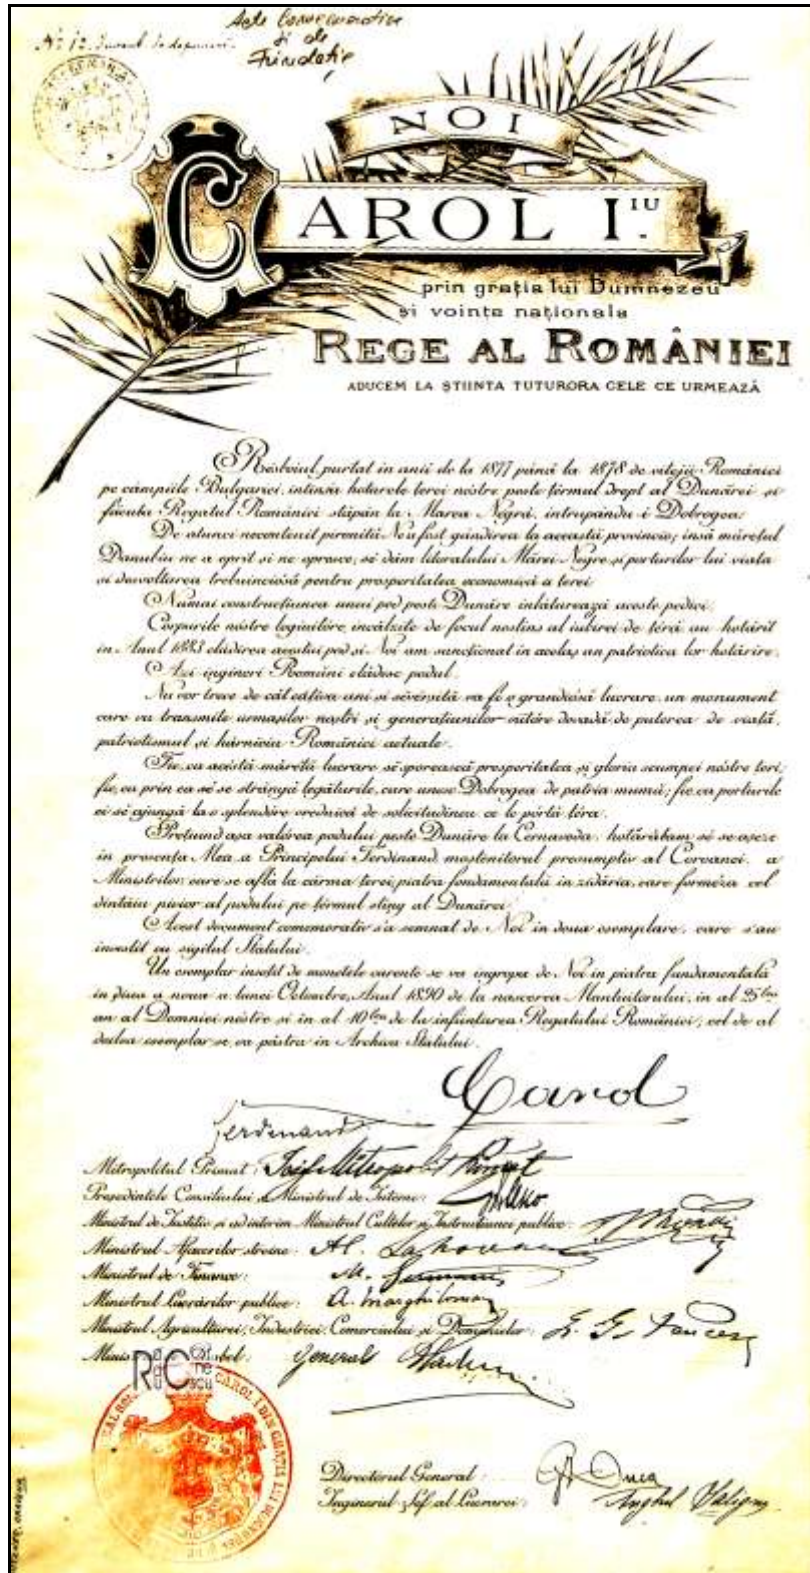 Acte Comemorative
și de
Fundație
No 12.
NOI
CAROL I IU
prin grația lui Dumnezeu
și vointa naționala
REGE AL ROMÂNIEI
ADUCEM LA STIINTA TUTURORA CELE CE URMEAZĂ
Résboiul purtat in anii de la 1877 până la 1878 de vitejii României
pe câmpiile Bulgariei, intinse hotarele terei nóstre peste țérmul drept al Dunărei și
făcuta Regatul României stăpân la Marea Négră, intrupându-i Dobrogea.
De atunci necontenit pironită Ne-a fost gândirea la aceastá provincie; însă mărețul
Danubiu ne a oprit si ne opresce, sé dăm litoralului Mărei Negre și porturilor lui viata
si desvoltarea trebuinciósă pentru prosperitatea economică a terei
Numai construcțiunea unui pod peste Dunăre inlăturează aceste pedici.
Corpurile nóstre legiuitóre, incălzite de focul nestins al iubirei de téră au hotărit
in Anul 1883 clădirea acestui pod și Noi am sancționat in acelaș an patriotica lor hotărire.
Azi ingineri Români clădesc podul.
Nu vor trece de cât câtiva ani si séversită va fi o grandiósă lucrare, un monument
care va transmite urmașilor noștri și generațiunilor viitóre dovadă de puterea de viață,
patriotismul și hărnicia României actuale.
Fie, ca acéstă măréță lucrare sé sporească prosperitatea și gloria scumpei nóstre teri;
fie, ca prin ea sé se strângă legăturile, care unesc Dobrogea de patria mumă; fie, ca porturile
ei sé ajungă la o splendóre vrednică de solicitudinea ce le pórtă téra.
Prețuind asa valórea podului peste Dunăre la Cernavoda, hotărâtam sé se aseze
in presența Mea a Principelui Ferdinand mostenitorul presumptiv al Coroanei, a
Ministrilor, care se află la cârma terei, piatra fondamentală in zidăria, care forméza cel
dintăiu picior al podului pe țérmul stâng al Dunărei.
Acest document comemorativ s'a semnat de Noi in doua esemplare, care s'au
investit cu sigilul Statului.
Un esemplar insotit de monetele curente se va ingropa de Noi in piatra fundamentală
in diua a noua a lunei Octombre, Anul 1890 de la nascerea Mantuitorului, in al 25 lea
an al Domniei nóstre si in al 10 lea de la infiintarea Regatului României; cel de al
doilea esemplar se va păstra in Archiva Statului.
Carol
Ferdinand
Metropolitul Primat: Iosif Mitropolit Primat
Președintele Consiliului si Ministrul de Interne:
Ministrul de Justitie si ad interim Ministrul Cultelor si Instructiunei publice:
Ministrul Afacerilor streine: Al. Lahovari
Ministrul de Finance: M. Germani
Ministrul Lucrărilor publice: A. Marghiloman
Ministrul Agriculturei, Industriei, Comerciului și Domeniilor:
General
CAROL I DIN GRATIA LUI DUMNEZEU
Directorul General: G. Duca
Inginerul Șef al Lucrarei: Anghel Saligny